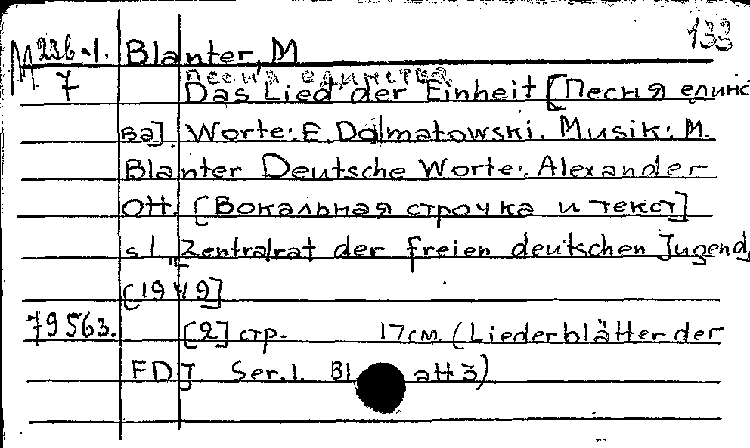 133
M 236-1. Blanter, M
песня единства
7 Das Lied der Einheit [Песня единс
ва]. Worte: E. Dolmatowski. Musik: M.
Blanter Deutsche Worte: Alexander
Ott. [Вокальная строчка и текст]
s.l., Zentralrat der freien deutschen Jugend,
[1949]
79563. [2] стр. 17см. (Liederblätter der
FDJ Ser.1. Bl att 3)